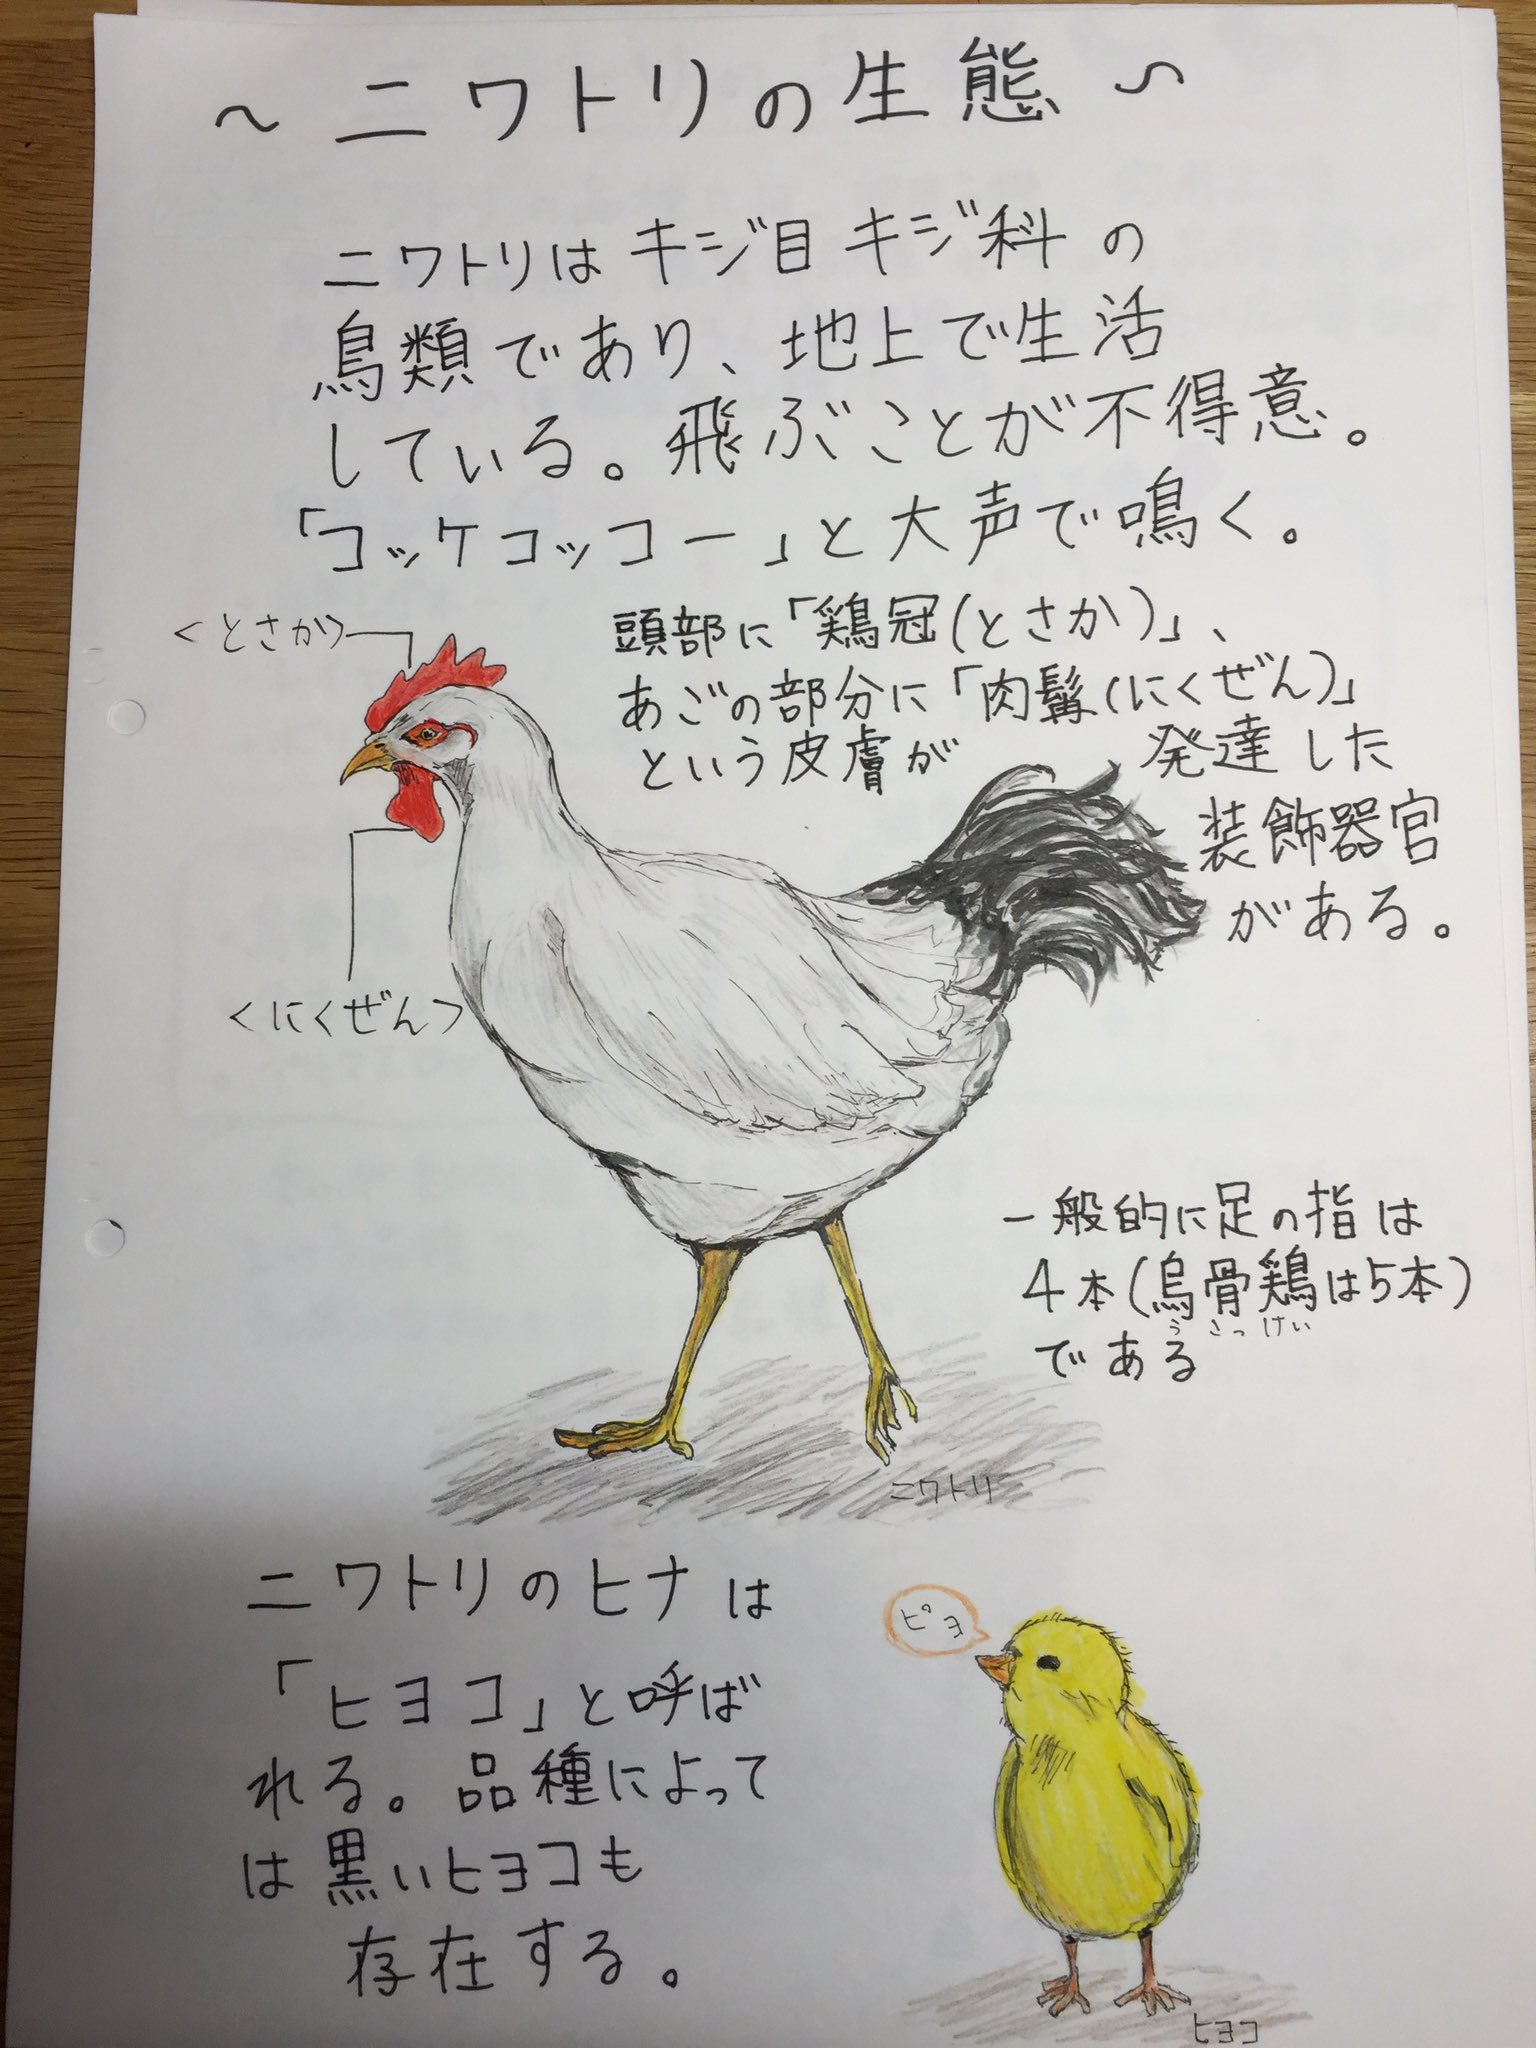 ～ニワトリの生態～
ニワトリはキジ目キジ科の
鳥類であり、地上で生活
している。飛ぶことが不得意。
「コッケコッコー」と大声で鳴く。
<とさか>
頭部に「鶏冠(とさか)」、
あごの部分に「肉髯(にくぜん)」
という皮膚が発達した
装飾器官
がある。
<にくぜん>
一般的に足の指は
4本(烏骨鶏は5本)
うこっけい
である
ニワトリ
ニワトリのヒナは
「ヒヨコ」と呼ば
れる。品種によって
は黒いヒヨコも
存在する。
ピヨ
ヒヨコ